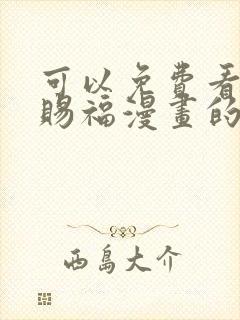 可以免费看
賜福漫畫的
西島大介